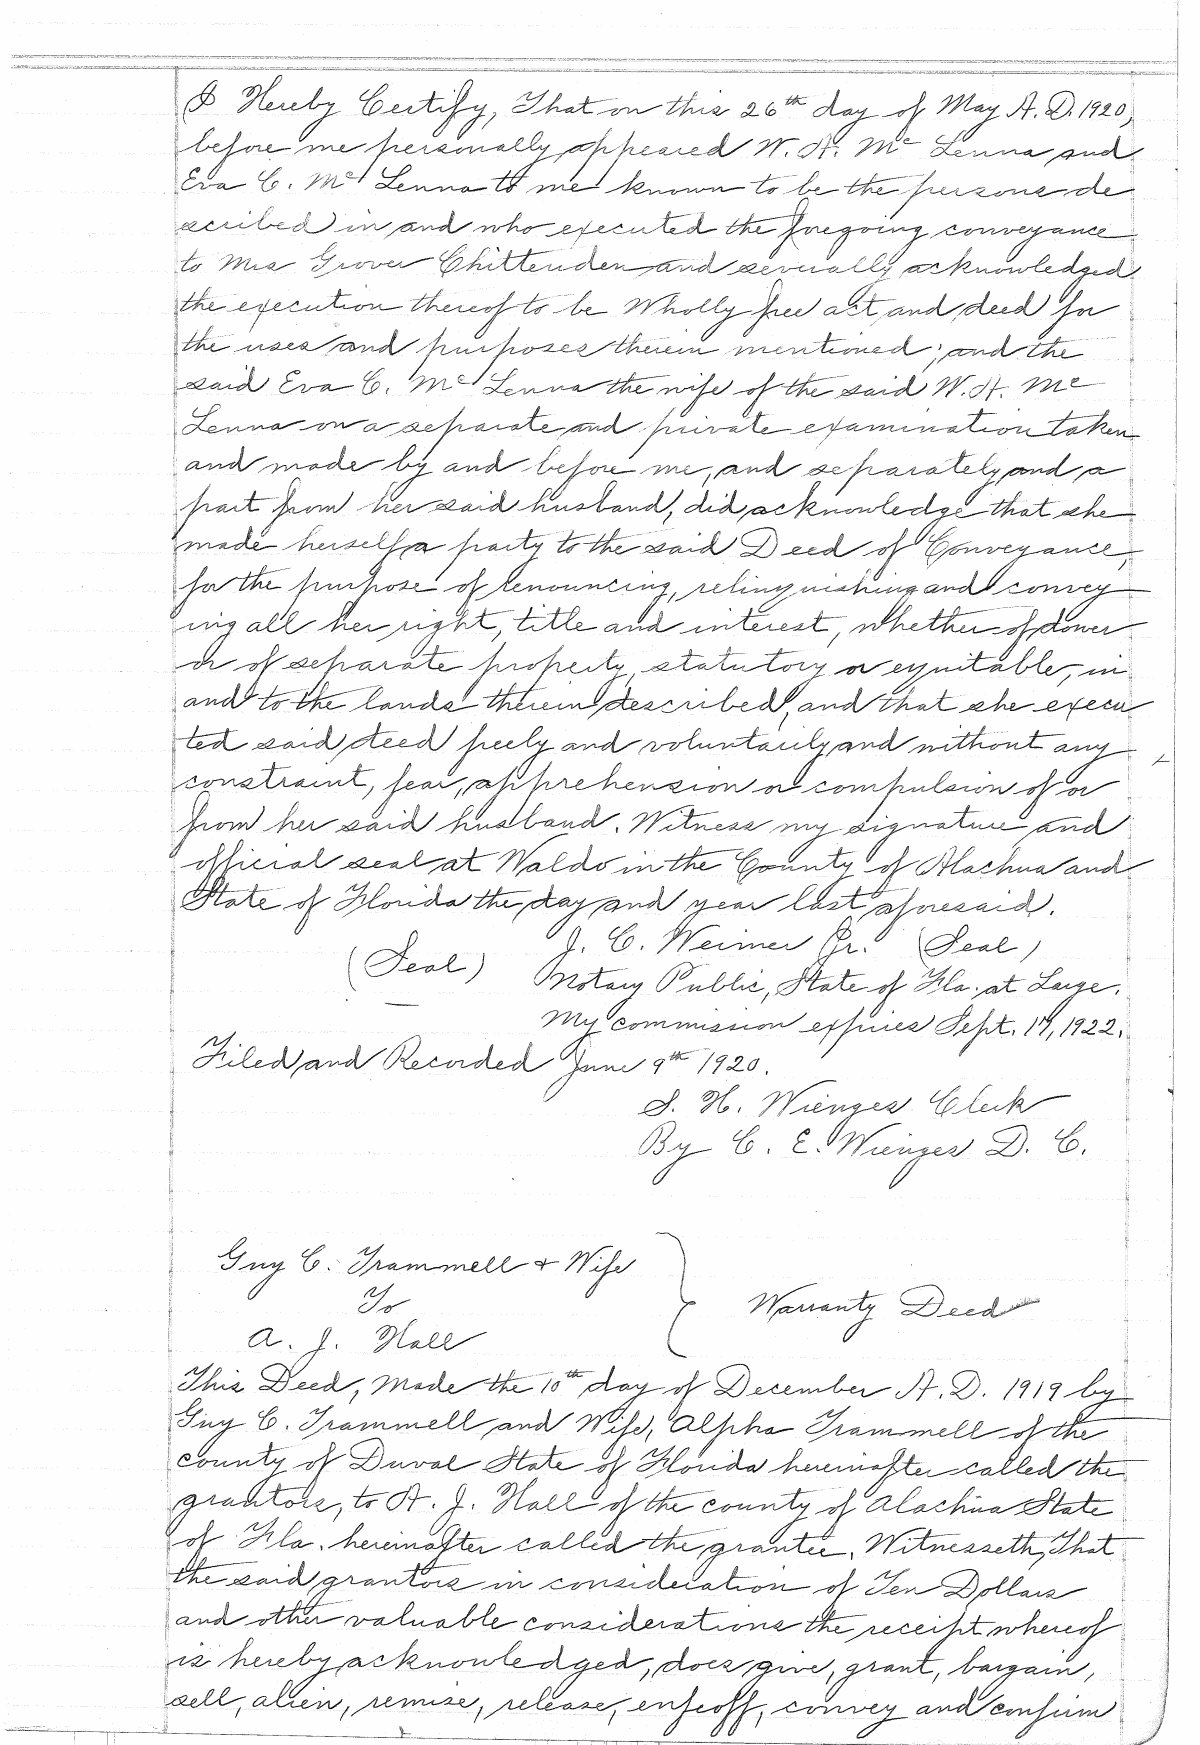 I Hereby Certify, That on this 26th day of May A. D. 1920,
before me personally appeared W. H. Mc Lenna and
Eva C. Mc Lenna to me known to be the persons de
scribed in and who executed the foregoing conveyance
to Mrs Grover Chittenden and severally acknowledged
the execution thereof to be Wholly free act and deed for
the uses and purposes therein mentioned; and the
said Eva C. Mc Lenna the wife of the said W. H. Mc
Lenna on a separate and private examination taken
and made by and before me, and separately and a
part from her said husband, did acknowledge that she
made herself a party to the said Deed of Conveyance,
for the purpose of renouncing, relinquishing and convey
ing all her right, title and interest, whether of dower
or of separate property, statutory or equitable, in
and to the lands therein described, and that she execu
ted said deed freely and voluntarily and without any
constraint, fear, apprehension or compulsion of or
from her said husband. Witness my signature and
official seal at Waldo in the County of Alachua and
State of Florida the day and year last aforesaid.
J. C. Weimer Jr. (Seal)
(Seal) Notary Public, State of Fla. at Large.
My commission expires Sept. 17, 1922.
Filed and Recorded June 9th 1920.
S. H. Wienges Clerk
By C. E. Wienges D. C.
Guy C. Trammell & Wife
To
Warranty Deed
A. J. Hall
This Deed, Made the 10th day of December A. D. 1919 by
Guy C. Trammell and Wife, Alpha Trammell of the
county of Duval State of Florida hereinafter called the
grantors, to A. J. Hall of the county of Alachua State
of Fla. hereinafter called the grantee, Witnesseth, That
the said grantors in consideration of Ten Dollars
and other valuable considerations the receipt whereof
is hereby acknowledged, does give, grant, bargain,
sell, alien, remise, release, enfeoff, convey and confirm